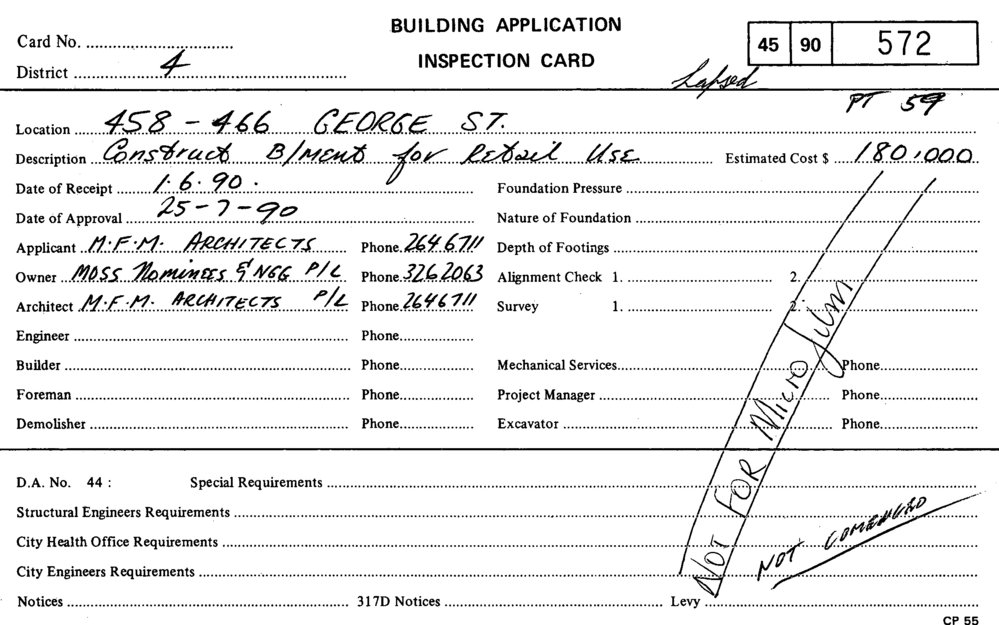 BUILDING APPLICATION
INSPECTION CARD
Card No.
District 4
45 90 572
Lapsed
PT 59
Location 458 - 466 GEORGE ST.
Description Construct B/ment for Retail Use Estimated Cost $ 180,000
Date of Receipt 1.6.90. Foundation Pressure
Date of Approval 25-7-90 Nature of Foundation
Applicant M.F.M. ARCHITECTS Phone 2646711 Depth of Footings
Owner MOSS Nominees & NGG P/L Phone 3262063 Alignment Check 1. 2.
Architect M.F.M. ARCHITECTS P/L Phone 2646711 Survey 1. 2.
Engineer Phone
Builder Phone Mechanical Services Phone
Foreman Phone Project Manager Phone
Demolisher Phone Excavator Phone
NOT FOR Micro film
D.A. No. 44 : Special Requirements
Structural Engineers Requirements
City Health Office Requirements
City Engineers Requirements
NOT COMENCED
Notices 317D Notices Levy
CP 55